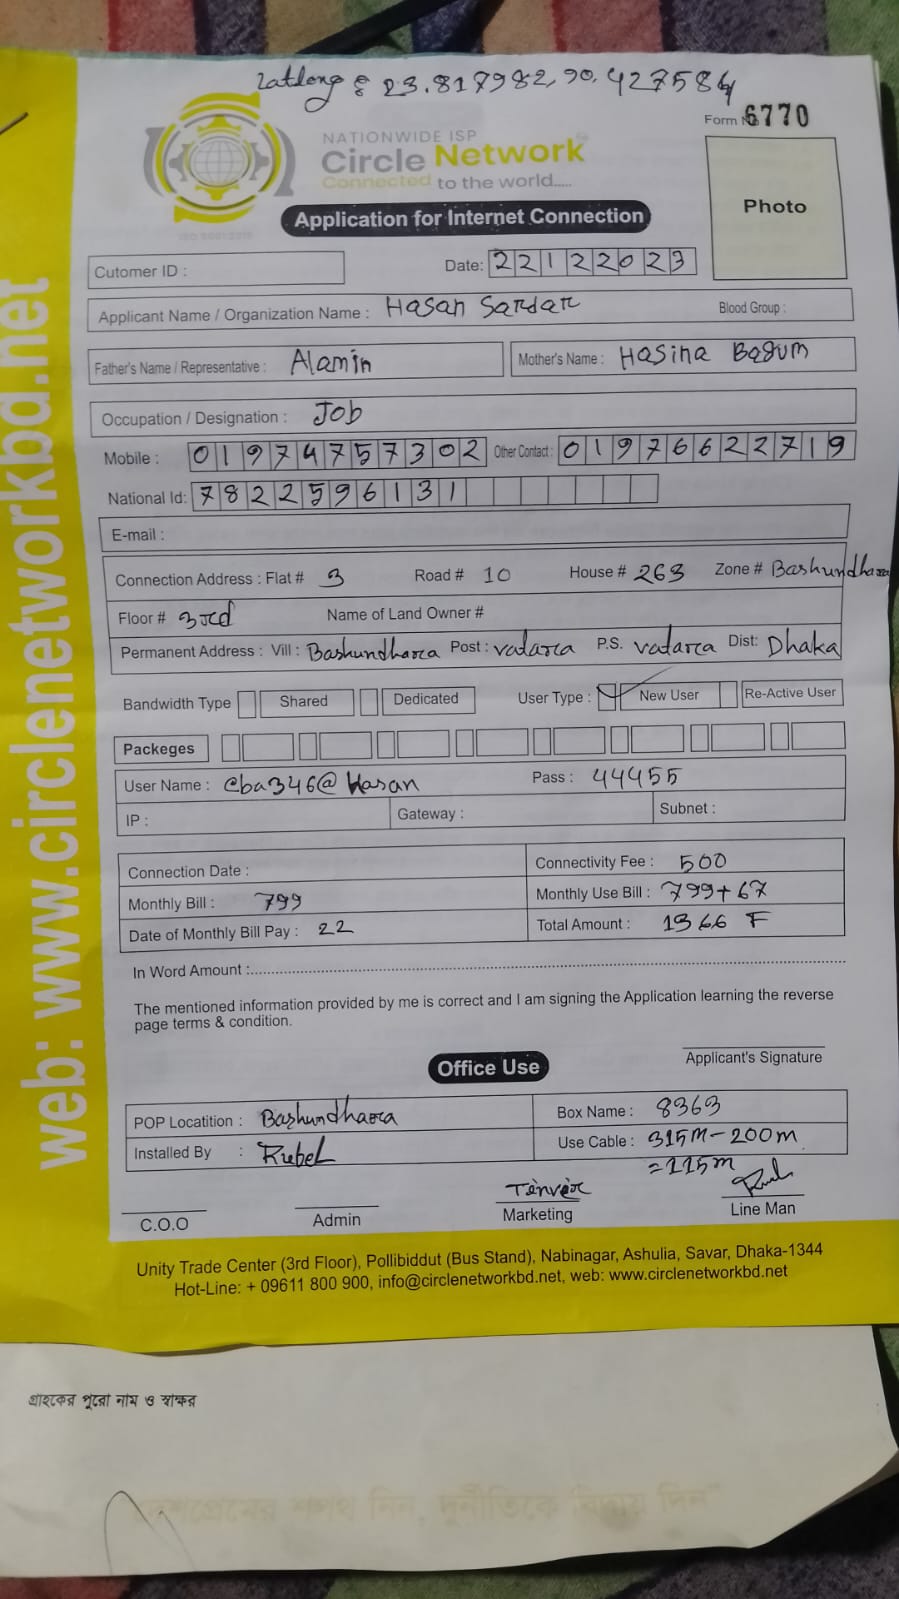 Latlong : 23.817982, 90.427584
Form No 6770
NATIONWIDE ISP
Circle Network
Connected to the world.....
ISO 9001:2015
Photo
Application for Internet Connection
Cutomer ID :
Date: 22122023
Applicant Name / Organization Name : Hasan Sardar Blood Group :
Father's Name / Representative : Alamin Mother's Name : Hasina Bagum
Occupation / Designation : Job
Mobile : 01974757302 Other Contact : 01976622719
National Id: 7822596131
E-mail :
Connection Address : Flat # 3 Road # 10 House # 263 Zone # Bashundhara
Floor # 3rd Name of Land Owner #
Permanent Address : Vill : Bashundhara Post : vatara P.S. vatara Dist: Dhaka
Bandwidth Type Shared Dedicated User Type : New User Re-Active User
Packeges
User Name : cba346@Hasan Pass : 44455
IP : Gateway : Subnet :
Connection Date : Connectivity Fee : 500
Monthly Bill : 799 Monthly Use Bill : 799+67
Date of Monthly Bill Pay : 22 Total Amount : 1366 F
In Word Amount :
The mentioned information provided by me is correct and I am signing the Application learning the reverse
page terms & condition.
Applicant's Signature
Office Use
POP Locatition : Bashundhara Box Name : 8363
Installed By : Rubel Use Cable : 315M-200m
=115m
Tanver
C.O.O Admin Marketing Line Man
Unity Trade Center (3rd Floor), Pollibiddut (Bus Stand), Nabinagar, Ashulia, Savar, Dhaka-1344
Hot-Line: + 09611 800 900, info@circlenetworkbd.net, web: www.circlenetworkbd.net
web: www.circlenetworkbd.net
গ্রাহকের পুরো নাম ও স্বাক্ষর
দেশপ্রেমের শপথ নিন, দুর্নীতিকে বিদায় দিন"